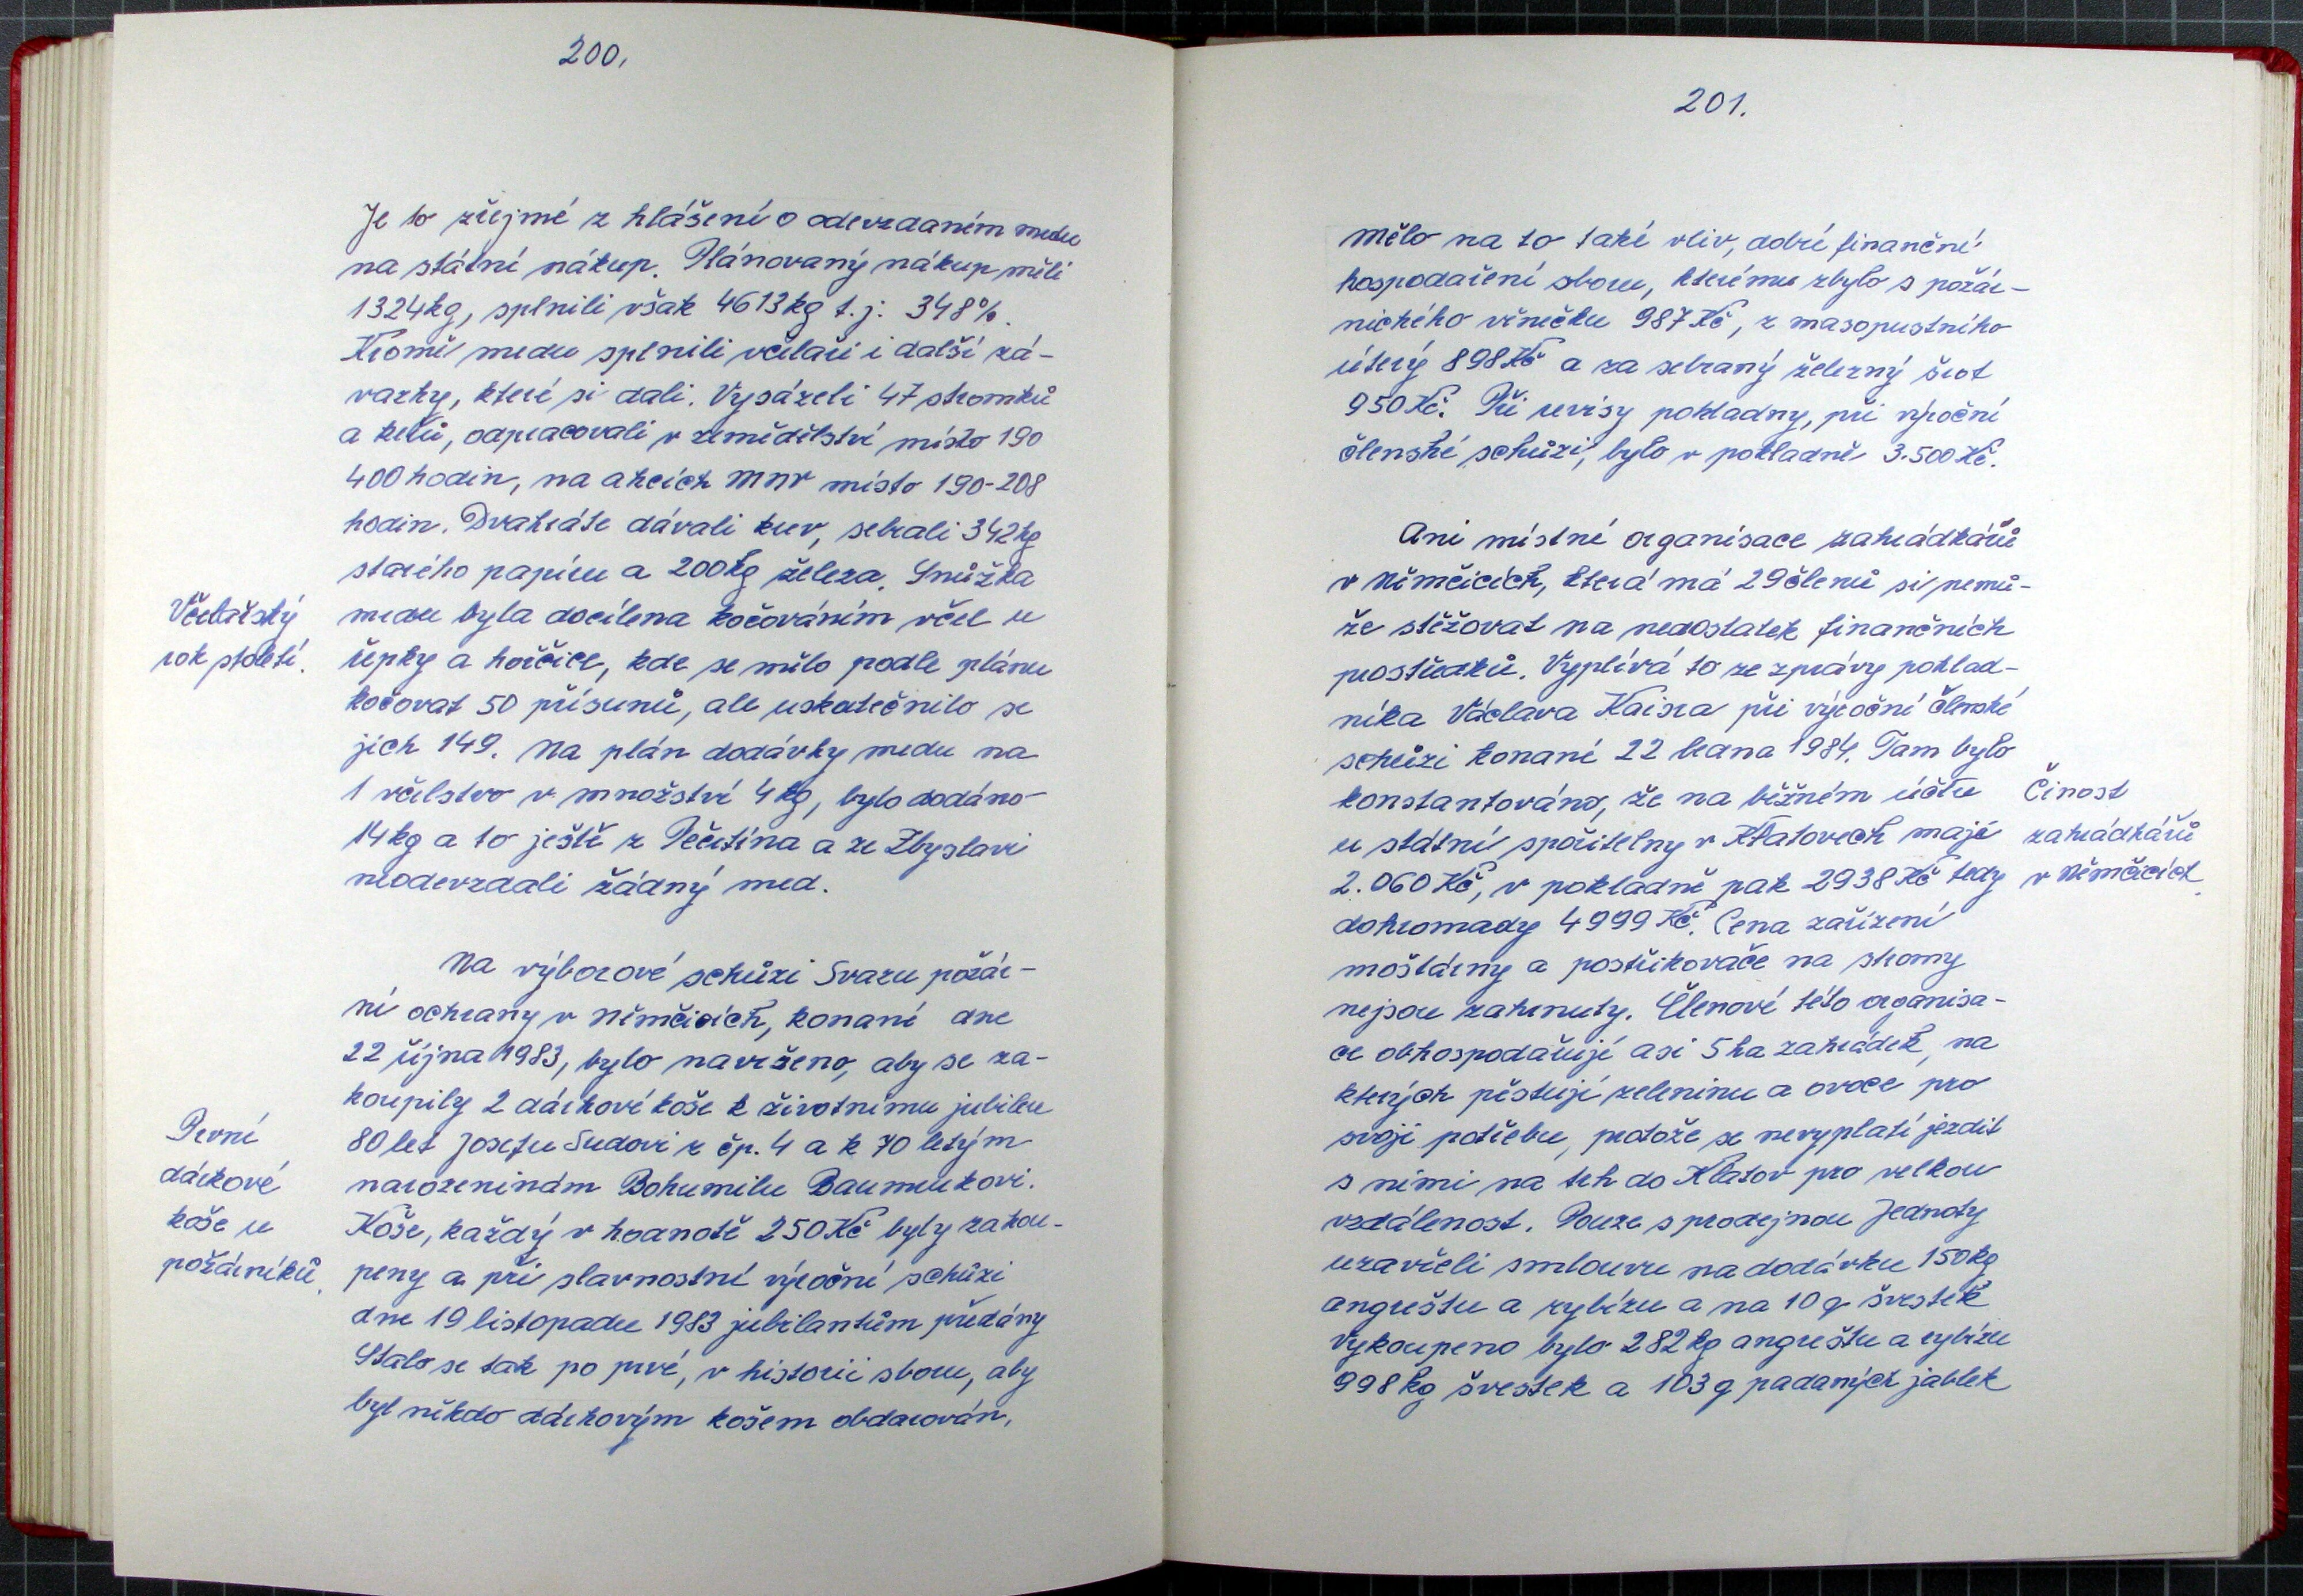 200.
Je to zřejmé z hlášení o odevzdaném medu
na státní nákup. Plánovaný nákup měli
1324kg, splnili však 4613kg t.j. 348%.
Kromě medu splnili včelaři i další zá-
vazky, které si dali. Vysázeli 47 stromků
a keřů, odpracovali v zemědělství místo 190
400 hodin, na akcích MNV místo 190-208
hodin. Dvakráte dávali krev, sebrali 342kg
starého papíru a 200kg železa. Snůžka
Včelařský
rok století.
medu byla docílena kočováním včel u
řepky a hořčice, kde se mělo podle plánu
kočovat 50 přísunů, ale uskutečnilo se
jich 149. Na plán dodávky medu na
1 včelstvo v množství 4kg, bylo dodáno
14kg a to ještě z Pečetína a ze Zbyslavi
neodevzdali žádný med.
Na výborové schůzi Svazu požár-
ní ochrany v Němčicích, konané dne
22 října 1983, bylo navrženo, aby se za-
koupily 2 dárkové koše k životnímu jubileu
První
dárkové
koše u
požárníků.
80 let Josefu Sudovi z čp. 4 a k 70 letým
narozeninám Bohumilu Baumrukovi.
Koše, každý v hodnotě 250 Kč byly zakou-
peny a při slavnostní výroční schůzi
dne 19 listopadu 1983 jubilantům předány
Stalo se tak po prvé, v historii sboru, aby
byl někdo dárkovým košem obdarován,
201.
mělo na to také vliv, dobré finanční
hospodaření sboru, kterému zbylo s požár-
nického věnečku 987 Kč, z masopustního
úterý 898 Kč a za sebraný železný šrot
950 Kč. Při revisy pokladny, při výroční
členské schůzi, bylo v pokladně 3.500 Kč.
Ani místní organisace zahrádkářů
v Němčicích, která má 29 členů si nemů-
že stěžovat na nedostatek finančních
prostředků. Vyplívá to ze zprávy poklad-
níka Václava Kaisra při výroční členské
schůzi konané 22 ledna 1984. Tam bylo
konstantováno, že na běžném účtu
u státní spořitelny v Klatovech mají
2.060 Kč, v pokladně pak 2938 Kč tedy
Činost
zahrádkářů
v Němčicích.
dohromady 4999 Kč. Cena zařízení
moštárny a postřikovače na stromy
nejsou zahrnuty. Členové této organisa-
ce obhospodařují asi 5 ha zahrádek, na
kterých pěstují zeleninu a ovoce pro
svoji potřebu, protože se nevyplatí jezdit
s nimi na trh do Klatov pro velkou
vzdálenost. Pouze s prodejnou Jednoty
uzavřeli smlouvu na dodávku 150kg
angreštu a rybízu a na 10 q švestek
Vykoupeno bylo 282 kg angreštu a rybízu
998 kg švestek a 103 q padaných jablek